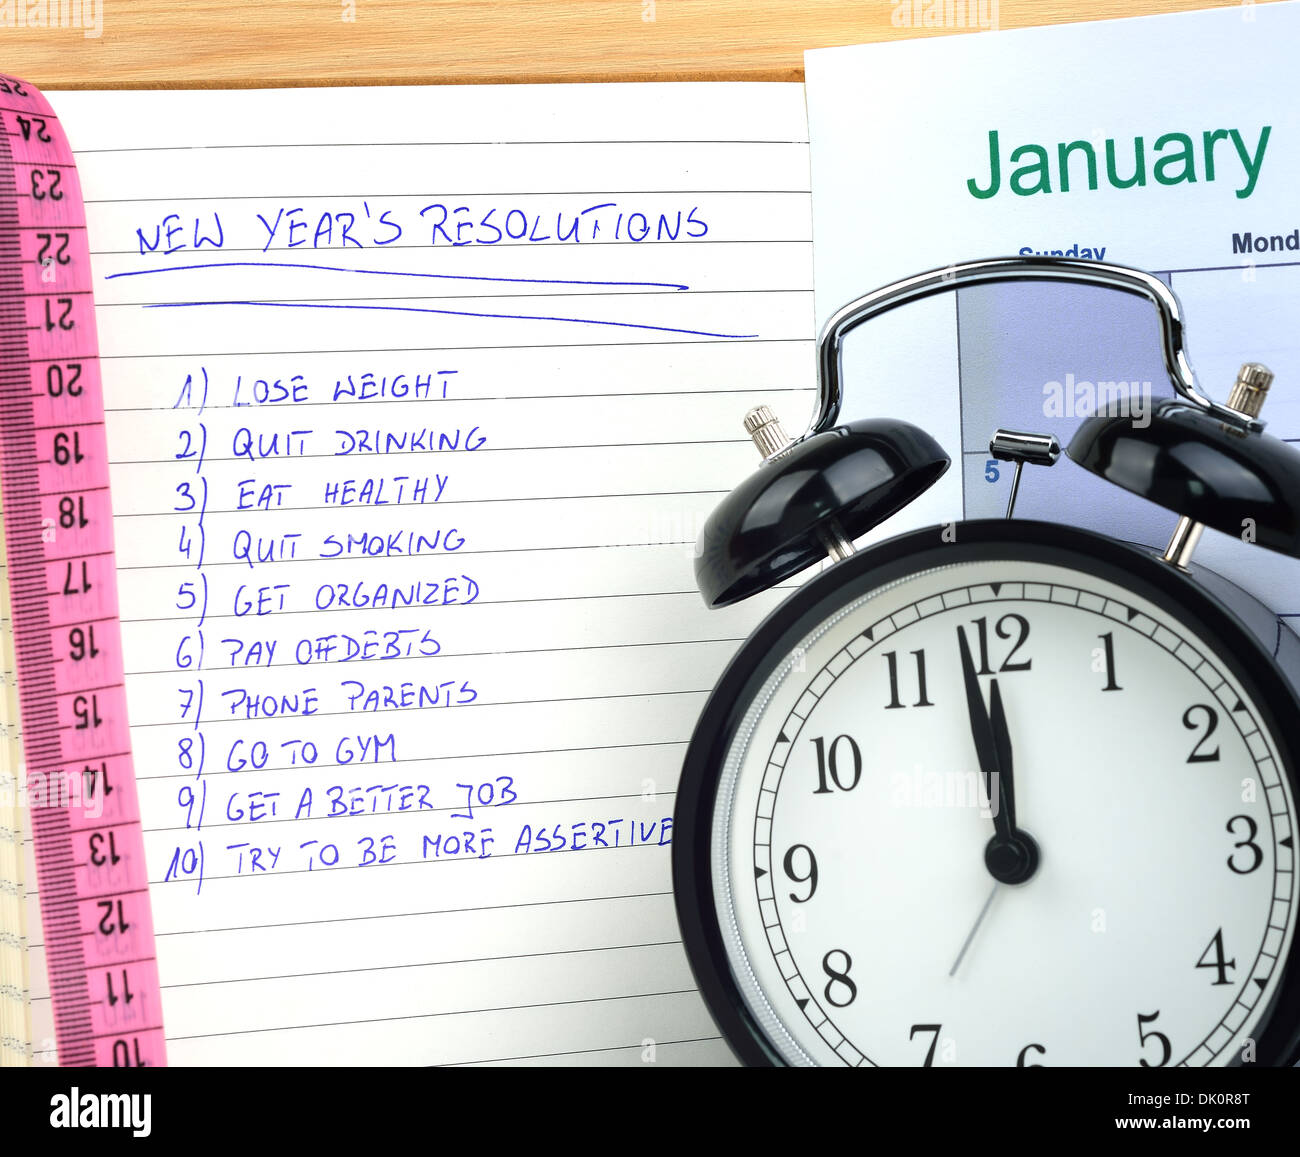 NEW YEAR'S RESOLUTIONS
1) LOSE WEIGHT
2) QUIT DRINKING
3) EAT HEALTHY
4) QUIT SMOKING
5) GET ORGANIZED
6) PAY OFF DEBTS
7) PHONE PARENTS
8) GO TO GYM
9) GET A BETTER JOB
10) TRY TO BE MORE ASSERTIVE
January
Sunday Mond
5
12
1
2
3
4
5
6
7
8
9
10
11
25
24
23
22
21
20
19
18
17
16
15
14
13
12
11
10
alamy stock photo
DK0R8T
www.alamy.com